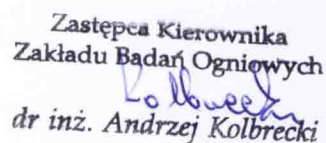 Zastępca Kierownika
Zakładu Badań Ogniowych
Kolbrecki
dr inż. Andrzej Kolbrecki